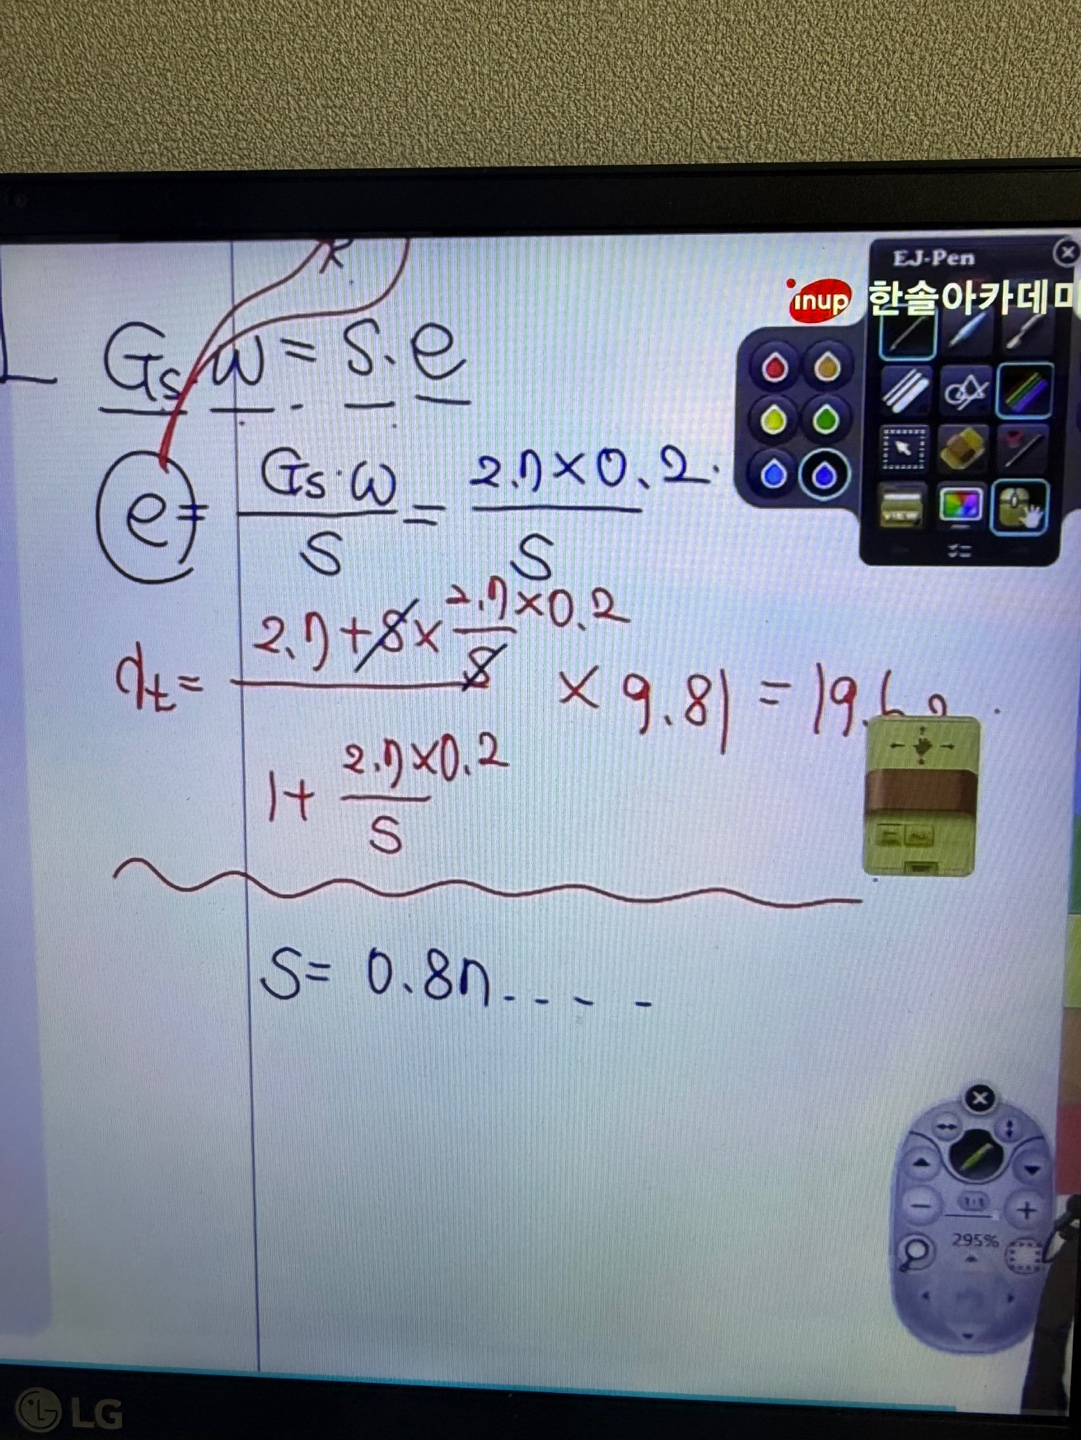 EJ-Pen
inup 한솔아카데미
Gs·w = S·e
e = Gs·w / S = 2.7×0.2 / S
γt = (2.7+S×2.7×0.2/S) / (1+2.7×0.2/S) × 9.81 = 19.6
S = 0.87....
1:1
295%
LG